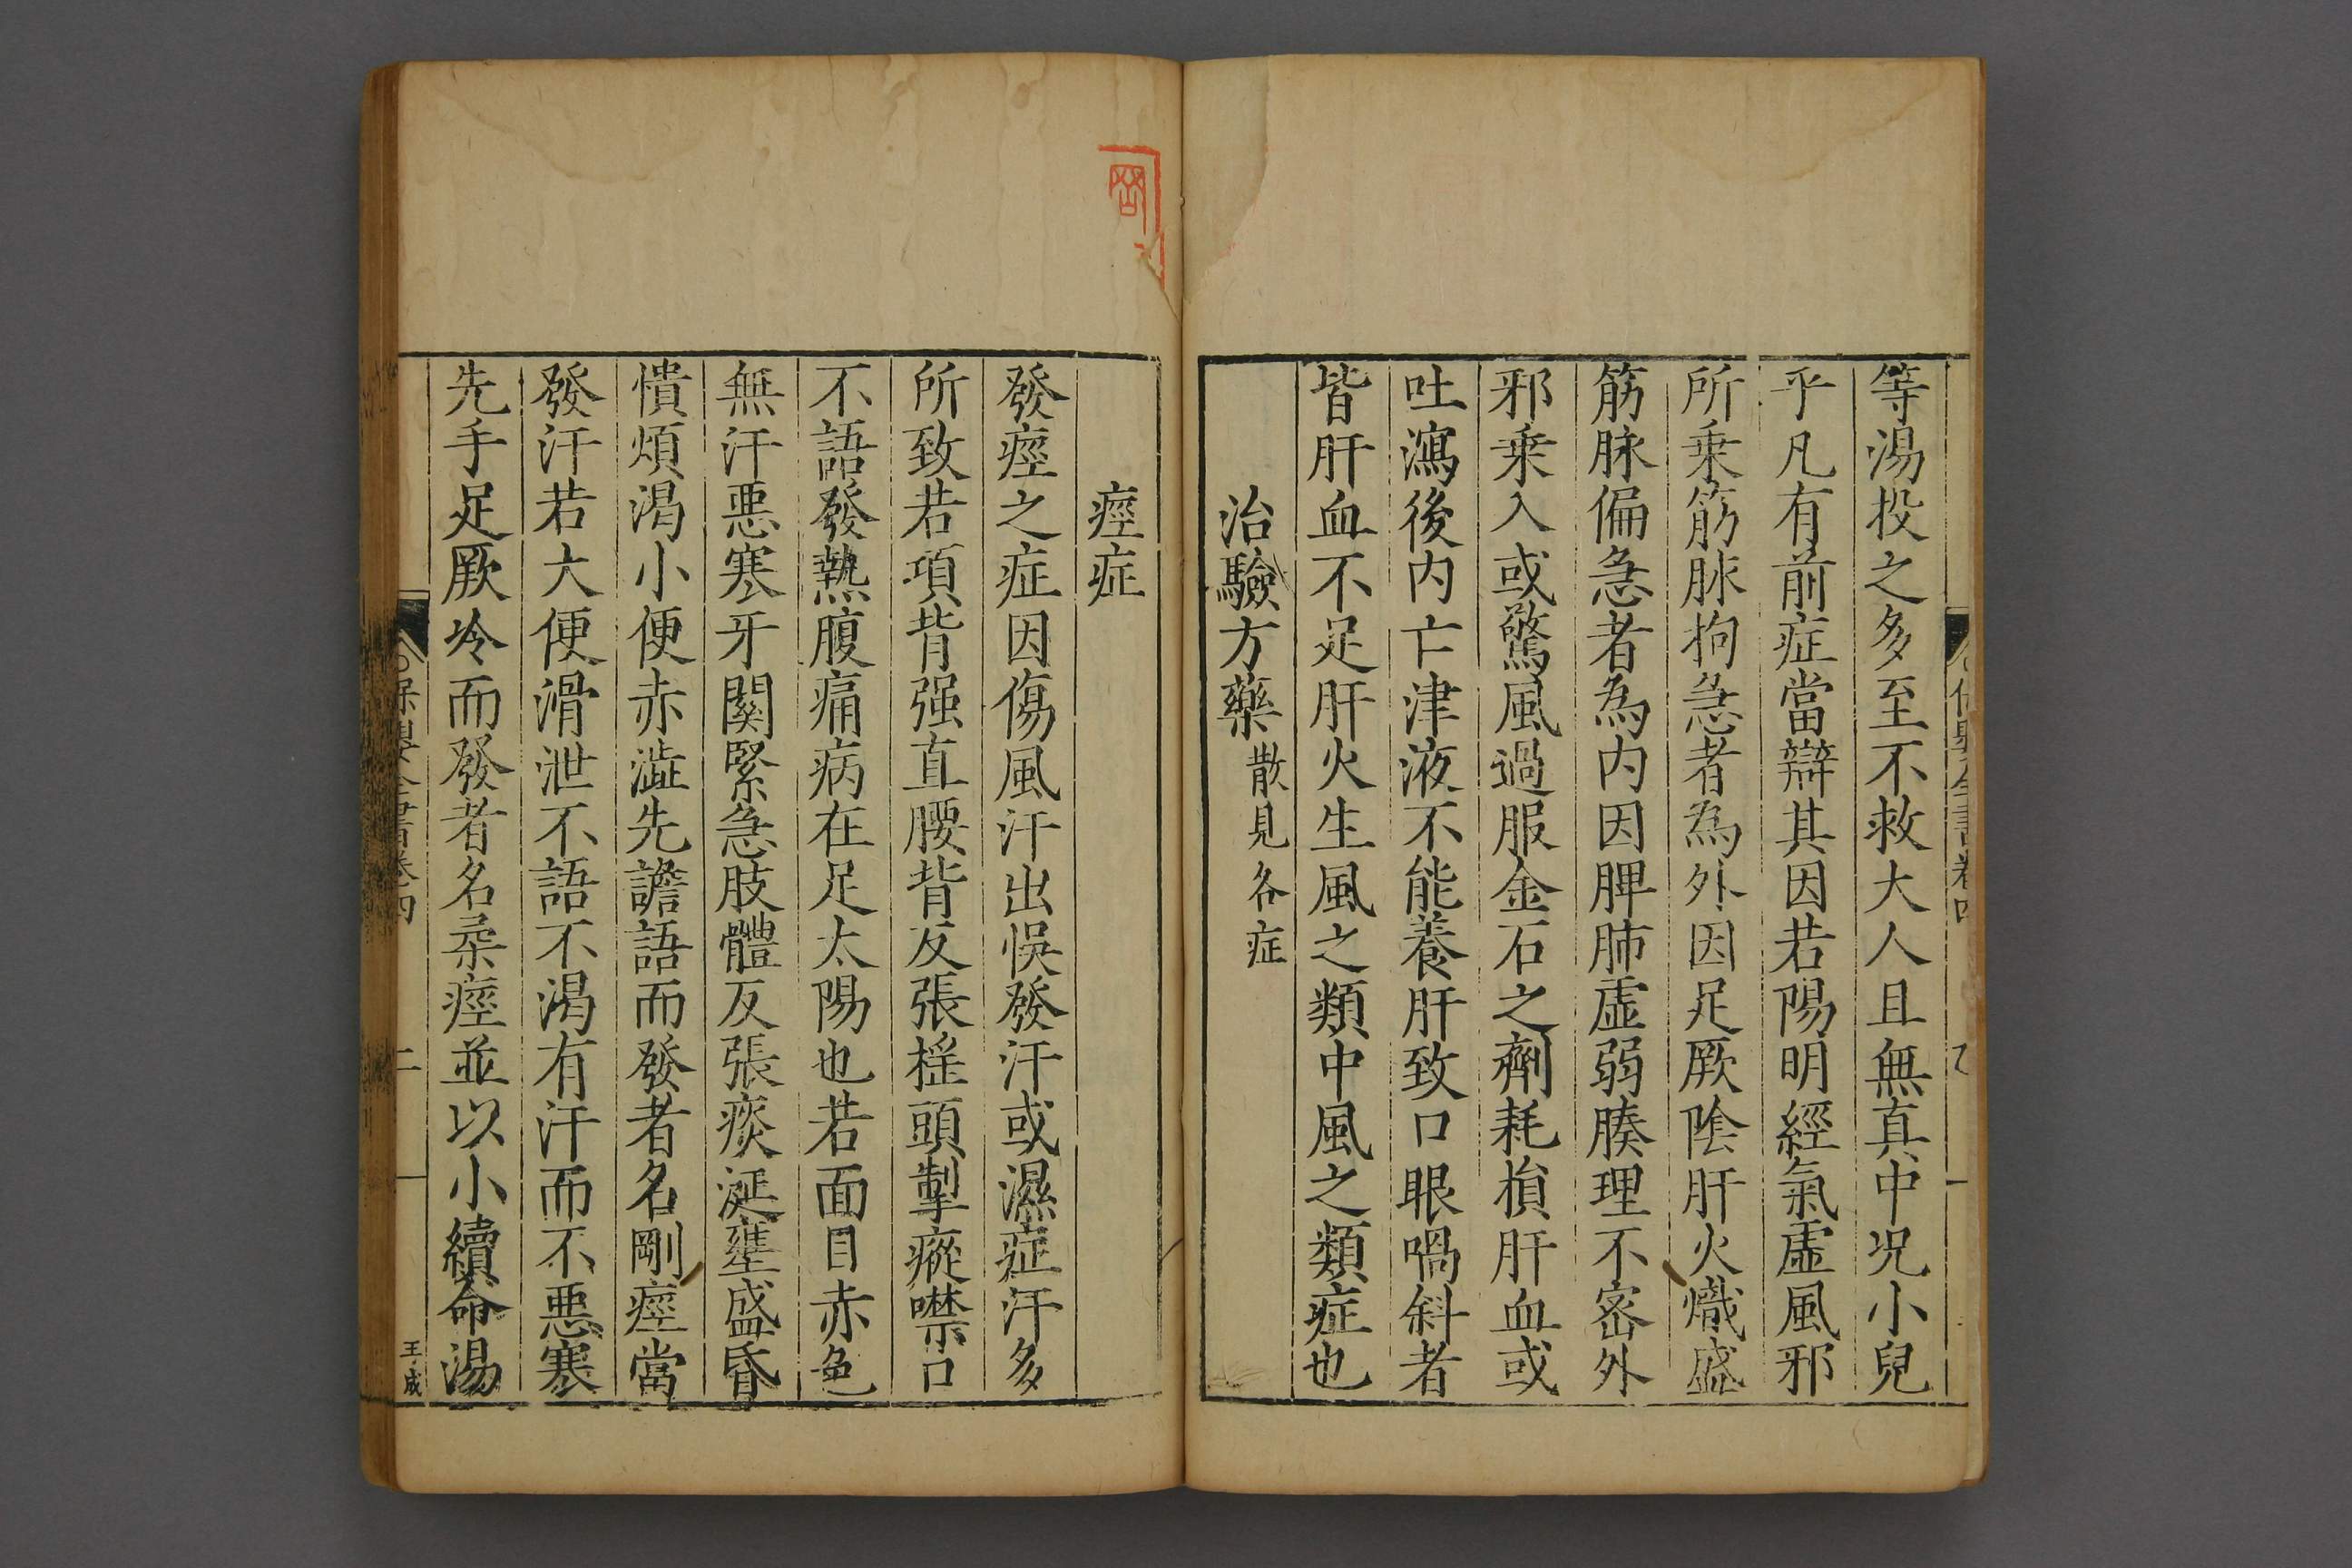 等湯投之多至不救大人且無真中况小兒
乎凡有前症當辯其因若陽明經氣虛風邪
所乗筋脉拘急者為外因足厥陰肝火熾盛
筋脉偏急者為内因脾肺虛弱腠理不密外
邪乗入或驚風過服金石之劑耗損肝血或
吐瀉後内亡津液不能養肝致口眼喎斜者
皆肝血不足肝火生風之類中風之類症也
治驗方藥散見各症
痙症
發痙之症因傷風汗出悞發汗或濕症汗多
所致若項背强直腰背反張榣頭掣瘲噤口
不語發熱腹痛病在足太陽也若面目赤色
無汗惡寒牙關緊急肢體反張痰涎壅盛昏
憒煩渴小便赤澁先譫語而發者名剛痙當
發汗若大便滑泄不語不渴有汗而不惡寒
先手足厥冷而發者名柔痙並以小續命湯
保嬰全書卷四
二
王成